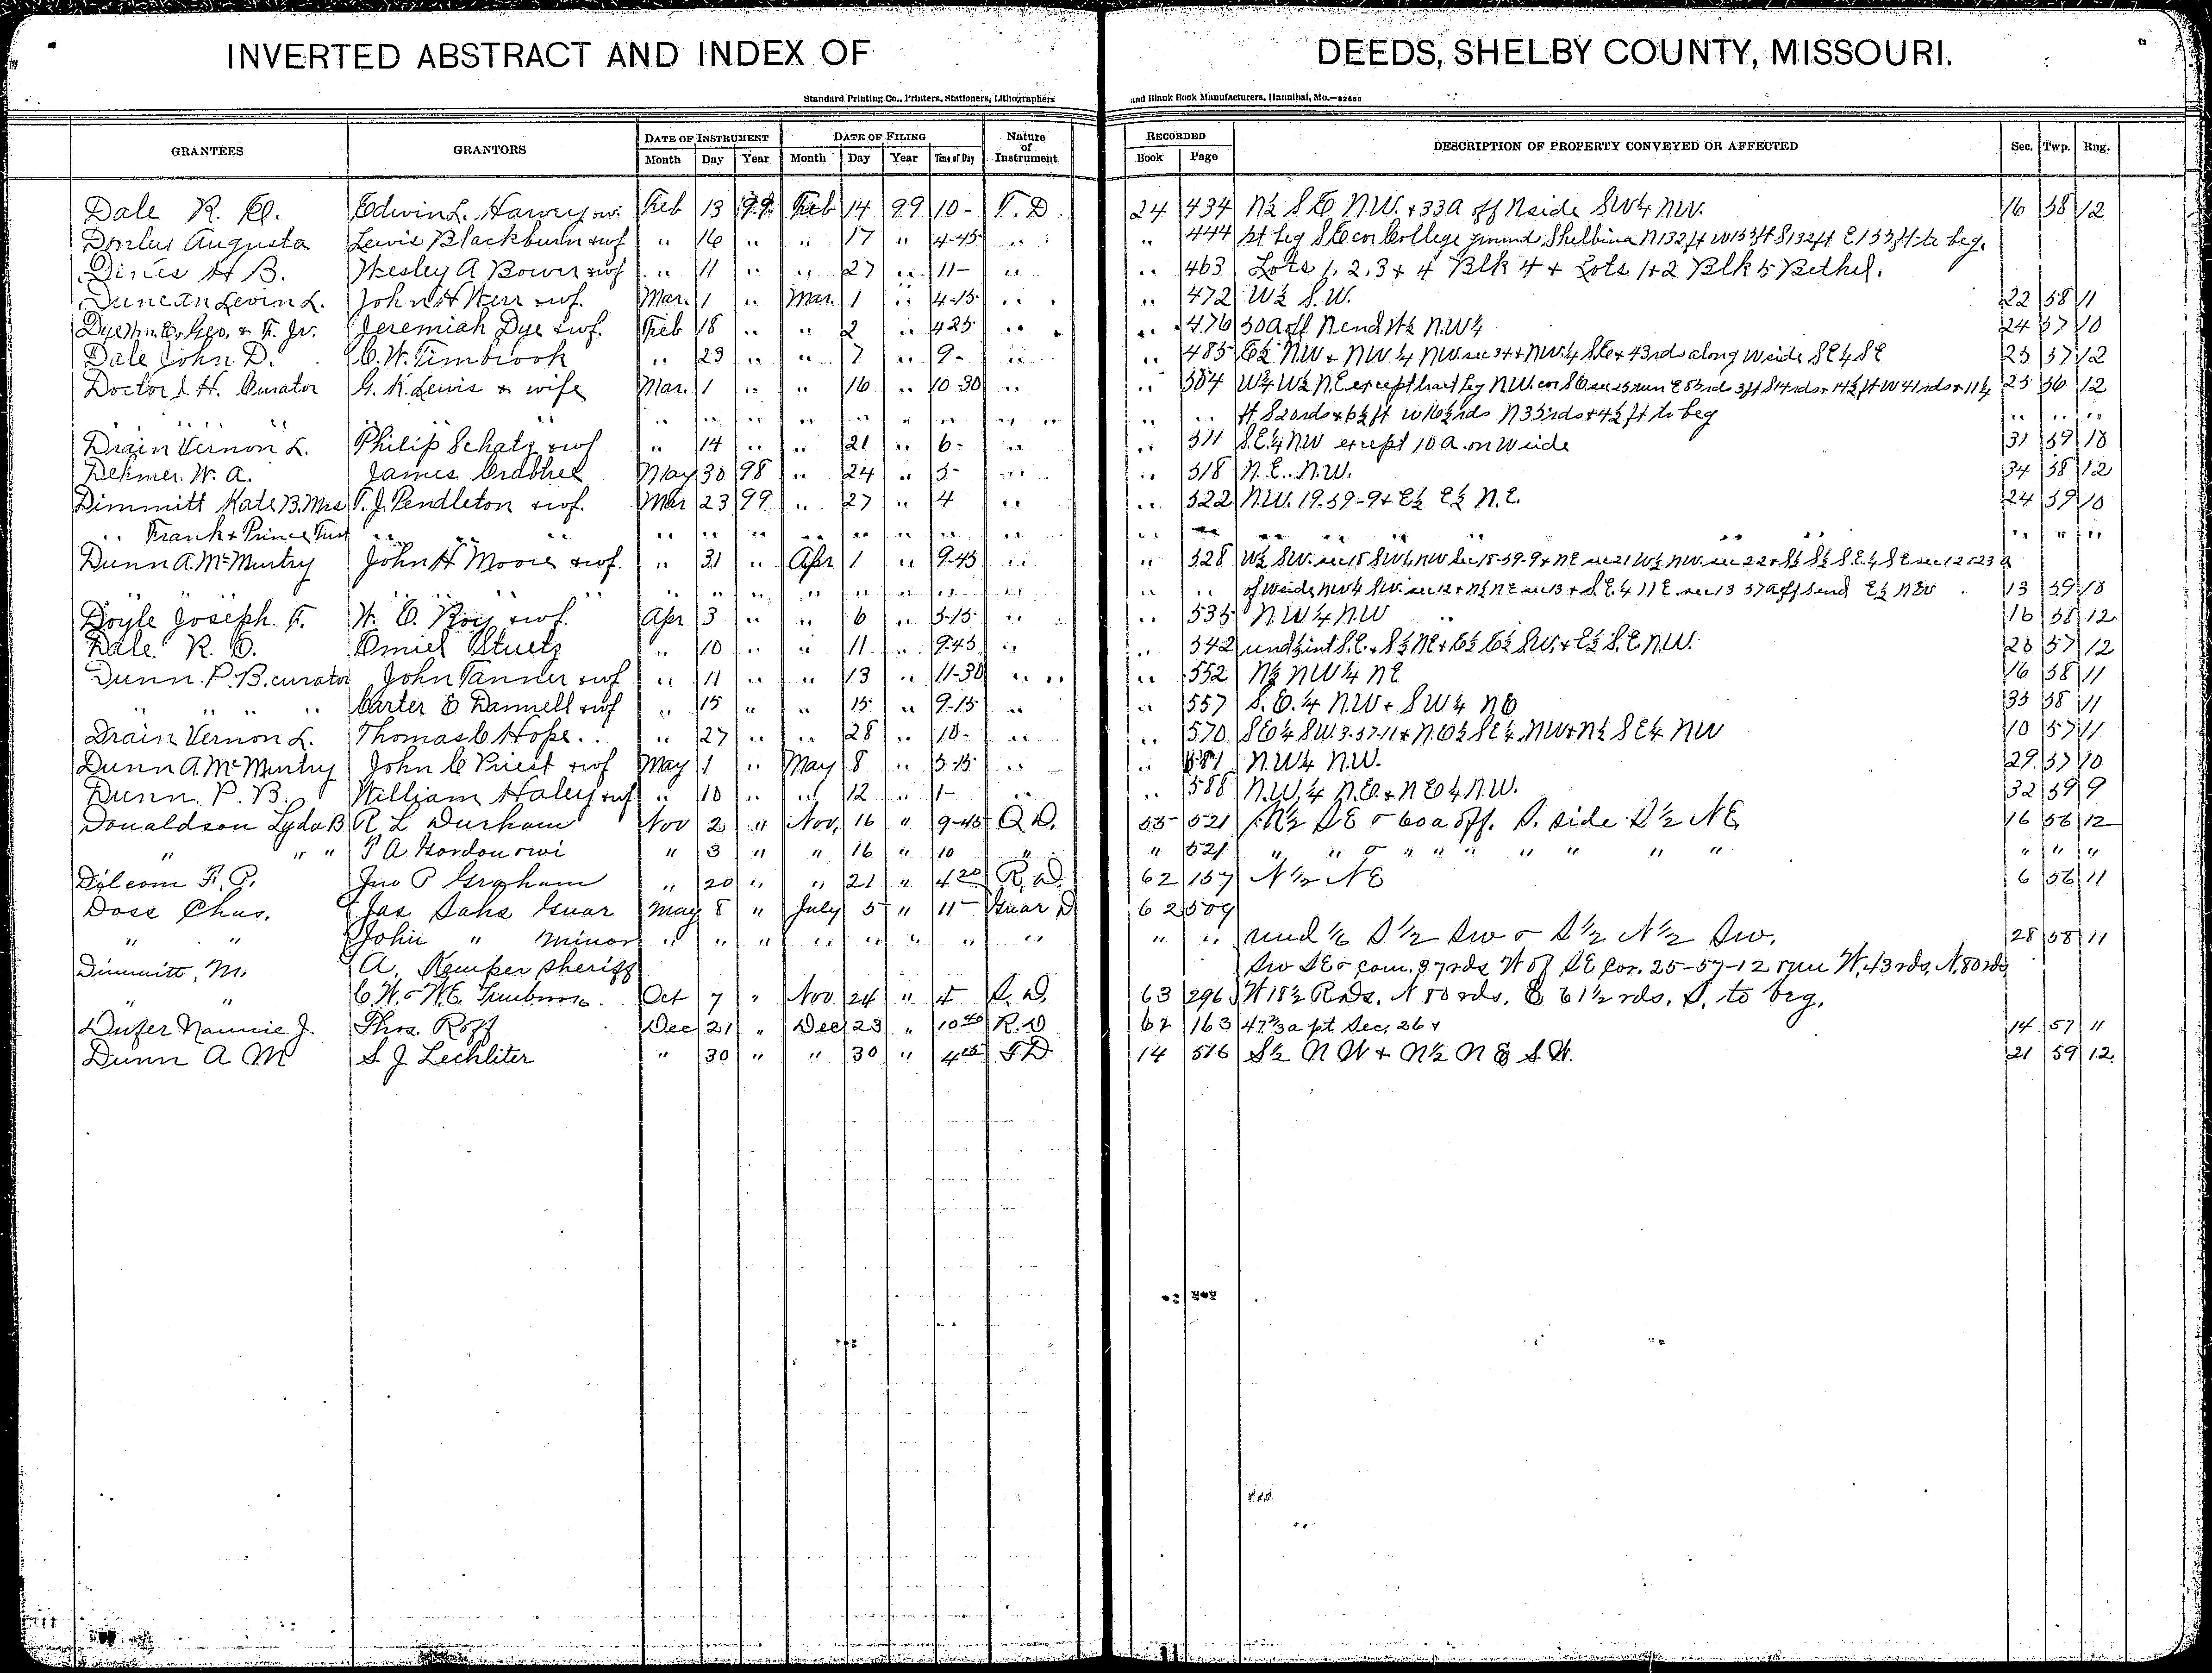 INVERTED ABSTRACT AND INDEX OF DEEDS, SHELBY COUNTY, MISSOURI.
Standard Printing Co., Printers, Stationers, Lithographers and Blank Book Manufacturers, Hannibal, Mo.—82688
GRANTEES GRANTORS DATE OF INSTRUMENT DATE OF FILING Nature of Instrument RECORDED DESCRIPTION OF PROPERTY CONVEYED OR AFFECTED Sec. Twp. Rng.
Month Day Year Month Day Year Time of Day Book Page
Dale R. E. Edwin L. Harvey & wi Feb 13 99 Feb 14 99 10- T. D. 24 434 N½ SE NW. & 33a off N side SW¼ NW. 16 58 12
Augusta Lewis Blackburn & wf " 16 " " 17 " 4-45 " " 444 pt beg SE cor College ground Shelbina N 132 ft W 153 ft S 132 ft E 153 ft to beg.
Dines H B. Wesley A Bower & wf " 11 " " 27 " 11- " " 463 Lots 1, 2, 3 & 4 Blk 4 & Lots 1 & 2 Blk 5 Bethel.
Duncan Levin L. John H Kerr & wf. Mar. 1 " Mar. 1 " 4-15 " " 472 W½ S.W. 22 58 11
Dye Geo. & F. Jr. Jeremiah Dye & wf. Feb 18 " " 2 " 4 25 " " 476 50a off N end W½ N.W¼ 24 57 10
Dale John D. C. W. Timbrook " 23 " " 7 " 9- " " 485 E½ NW & NW.¼ NW. sec 34 & NW.¼ SE & 43rds along W side SE¼ SE 25 57 12
Doctor J. H. Curator G. K. Lewis & wife Mar. 1 " " 16 " 10-30 " " 504 W¼ W½ N.E except tract beg N.W. cor 25 56 12
" " " " " " " " " " " " " " " ft S 20rds & 6½ ft W 16½ rds N 35rds & 4½ ft to beg " " "
Drain Vernon L. Philip Schatz & wf " 14 " " 21 " 6- " " 511 S.E.¼ NW except 10 a. on W side 31 59 10
Dehmer. W. A. James Crabtree May 30 98 " 24 " 3- " " 518 N.E. N.W. 34 58 12
Dimmitt Kate B. Mrs T. J. Pendleton & wf. Mar 23 99 " 27 " 4 " " 522 N.W. 19-59-9 & E½ E½ N.E. 24 59 10
" Frank & Prince Trust " " " " " " " " " " " " " " " "
Dunn A. McMurtry John H Moore & wf. " 31 " Apr 1 " 9-45 " " 528 W½ SW. sec 15 SW¼ NW Sec 15-59-9 & NE sec 21 W½ NW. sec 22 & S½ S½ S.E.¼ SE sec 12 & 23 a
" " " " " " " " " " " " of W side NW¼ SW. sec 12 & N½ NE sec 13 & S.E.¼ NE. sec 13 57a off S end E½ NW 13 59 10
Doyle Joseph. F. W. O. Ray & wf. Apr 3 " " 6 " 3-15 " " 535 N.W¼ N.W 16 58 12
Dale. R. E. Emiel Stuetz " 10 " " 11 " 9-45 " " 542 und ½ int S.E. & S½ NE & E½ E½ SW. & E½ S.E. N.W. 20 57 12
Dunn. P. B. curator John Tanner & wf " 11 " " 13 " 11-30 " " " 552 N½ NW¼ NE 16 58 11
" " " " Carter E Dannell & wf " 15 " " 15 " 9-15 " " 557 S.E.¼ N.W & SW¼ NE 35 58 11
Drain Vernon L. Thomas C Hope. " 27 " " 28 " 10- " " 570 SE¼ SW. 3-57-11 & N.E½ SE¼ NW & N½ SE¼ NW 10 57 11
Dunn A McMurtry John C Priest & wf May 1 " May 8 " 3-15 " " 581 N.W¼ N.W. 29 57 10
Dunn. P. B. William Haley & wf " 10 " " 12 " 1- " " 588 N.W.¼ N.E. & NE¼ N.W. 32 59 9
Donaldson Lyda B R L Durham Nov 2 " Nov. 16 " 9-45 Q D. 55 521 N½ SE & 60a off. S. side S½ NE 16 56 12
" " " T A Gordon & wi " 3 " " 16 " 10 " " 521 " " & " " " " " " " " " "
Dilcom F. P. Jno P Graham " 20 " " 21 " 4 20 R. D. 62 157 N½ NE 6 56 11
Doss Chas. Jas Sahs Guar May 8 " July 5 " 11- Guar D 62 509
" " John " Minor " " " " " " " " " " und ⅙ S½ SW & S½ N½ SW. 28 58 11
Dimmitt, M. A. Kemper Sheriff SW SE & com. 37rds W of SE cor. 25-57-12 run W. 43 rds, N. 80 rds
" " C. W. & W. E. Oct 7 " Nov 24 " 4- S. D. 63 296 W 18½ Rds. N 80 rds. E 61½ rds. S. to beg.
Dufer Nannie J. Thos. Roff Dec 21 " Dec 23 " 10 40 R. D 62 163 47⅔ a pt Sec. 26 & 14 57 11
Dunn A M S J. Lechliter " 30 " " 30 " 4 25 T D 14 516 S½ N W & N½ N E S W. 21 59 12